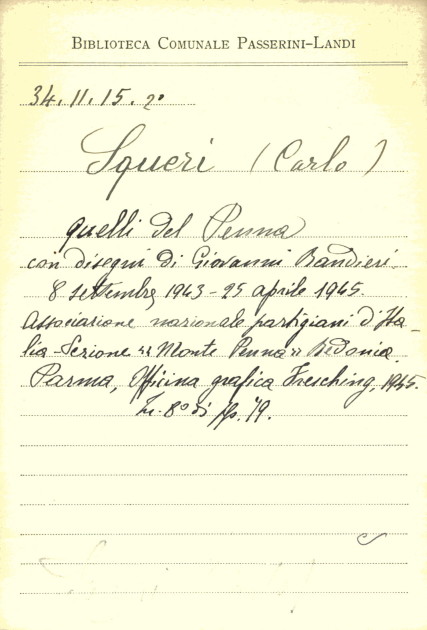 BIBLIOTECA COMUNALE PASSERINI-LANDI
34.11.15.2º
Squeri (Carlo)
quelli del Penna
con disegni di Giovanni Bandieri.
8 settembre 1943 - 25 aprile 1945.
Associazione nazionale partigiani d'Ita-
lia - Sezione "Monte Penna" Bedonia.
Parma, Officina grafica Fresching, 1945.
In. 8º di pp. 79.